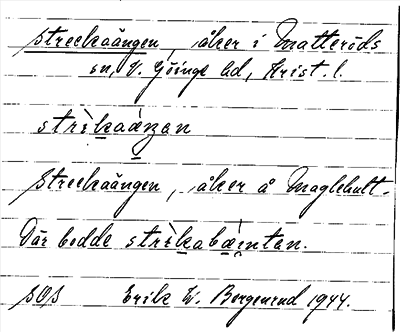 Streckaängen, åker i Matteröds
sn, V. Göinge hd, Krist. l.
strìkaàŋan
Streckaängen, åker å Maglehult.
Där bodde strìkabæ̀ntan.
SOS Erik W. Bergenrud 1944.